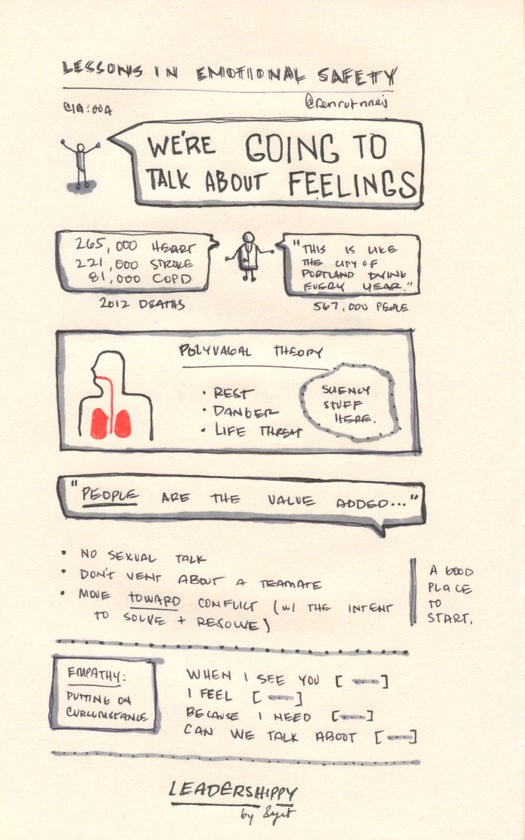 LESSONS IN EMOTIONAL SAFETY
@renrutnnej
WE'RE GOING TO
TALK ABOUT FEELINGS
265,000 HEART
221,000 STROKE
81,000 COPD
2012 DEATHS
"THIS IS LIKE
THE CITY OF
PORTLAND DYING
EVERY YEAR."
567,000 PEOPLE
POLYVAGAL THEORY
• REST
• DANGER
• LIFE THREAT
SCIENCY
STUFF
HERE.
"PEOPLE ARE THE VALUE ADDED..."
• NO SEXUAL TALK
• DON'T VENT ABOUT A TEAMATE
• MOVE TOWARD CONFLICT (W/ THE INTENT
TO SOLVE + RESOLVE)
A GOOD
PLACE
TO
START.
EMPATHY:
PUTTING ON
CIRCUMSTANCE
WHEN I SEE YOU [ — ]
I FEEL [ — ]
BECAUSE I NEED [ — ]
CAN WE TALK ABOUT [ — ]
LEADERSHIPPY
by